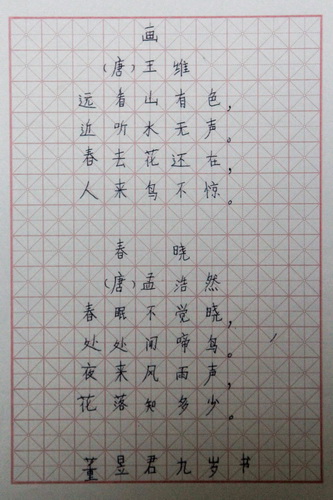 画
（唐）王维
远看山有色，
近听水无声。
春去花还在，
人来鸟不惊。
春晓
（唐）孟浩然
春眠不觉晓，
处处闻啼鸟。
夜来风雨声，
花落知多少。
董昱君九岁书